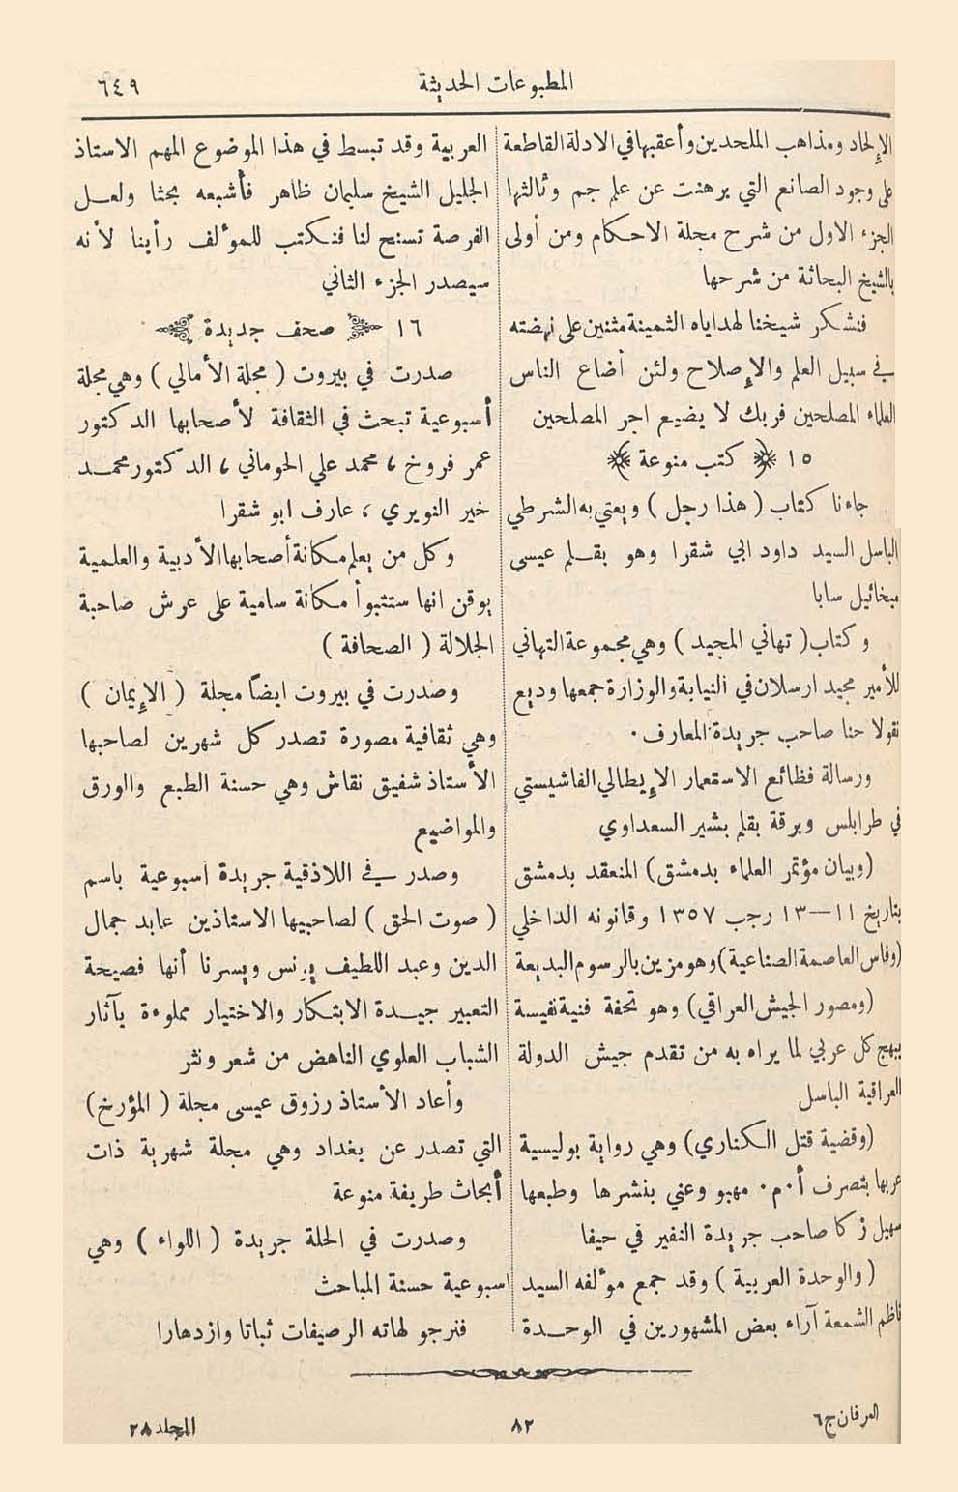 المطبوعات الحديثة
٦٤٩
الإلحاد ومذاهب الملحدين وأعقبها في الادلة القاطعة
على وجود الصانع التي برهنت عن علم جم وثالثها
الجزء الاول من شرح مجلة الاحكام ومن أولى
بالشيخ البحاثة من شرحها
فنشكر شيخنا لهداياه الثمينة مثنين على نهضته
في سبيل العلم والإصلاح ولئن أضاع الناس
العلماء المصلحين فربك لا يضيع اجر المصلحين
١٥ ﴿ كتب منوعة ﴾
جاءنا كتاب ( هذا رجل ) ويعتي به الشرطي
الباسل السيد داود ابي شقرا وهو بقلم عيسى
ميخائيل سابا
وكتاب ( تهاني المجيد ) وهي مجموعة التهاني
للأمير مجيد ارسلان في النيابة والوزارة جمعها وديع
نقولا حنا صاحب جريدة المعارف .
ورسالة فظائع الاستعمار الإيطالي الفاشيستي
في طرابلس وبرقة بقلم بشير السعداوي
(وبيان مؤتمر العلماء بدمشق) المنعقد بدمشق
بتاريخ ١١–١٣ رجب ١٣٥٧ وقانونه الداخلي
(وفاس العاصمة الصناعية) وهو مزين بالرسوم البديعة
(ومصور الجيش العراقي) وهو تحفة فنية نفيسة
يبهج كل عربي لما يراه به من تقدم جيش الدولة
العراقية الباسل
(وقضية قتل الكناري) وهي رواية بوليسية
عربها بتصرف أ.م. مهبو وعني بنشرها وطبعها
سهيل زكا صاحب جريدة النفير في حيفا
( والوحدة العربية ) وقد جمع مؤلفه السيد
ناظم الشمعة آراء بعض المشهورين في الوحدة
العربية وقد تبسط في هذا الموضوع المهم الاستاذ
الجليل الشيخ سليمان ظاهر فأشبعه بحثا ولعل
الفرصة تسنح لنا فنكتب للمؤلف رأينا لأنه
سيصدر الجزء الثاني
١٦ ﴿ صحف جديدة ﴾
صدرت في بيروت ( مجلة الأمالي ) وهي مجلة
أسبوعية تبحث في الثقافة لأصحابها الدكتور
عمر فروخ ، محمد علي الحوماني ، الدكتور محمد
خير النويري ، عارف ابو شقرا
وكل من يعلم مكانة أصحابها الأدبية والعلمية
يوقن انها ستتبوأ مكانة سامية على عرش صاحبة
الجلالة ( الصحافة )
وصدرت في بيروت ايضاً مجلة ( الإيمان )
وهي ثقافية مصورة تصدر كل شهرين لصاحبها
الأستاذ شفيق نقاش وهي حسنة الطبع والورق
والمواضيع
وصدر في اللاذقية جريدة اسبوعية باسم
( صوت الحق ) لصاحبيها الاستاذين عابد جمال
الدين وعبد اللطيف يونس ويسرنا أنها فصيحة
التعبير جيدة الابتكار والاختيار مملوءة بآثار
الشباب العلوي الناهض من شعر ونثر
وأعاد الأستاذ رزوق عيسى مجلة ( المؤرخ )
التي تصدر عن بغداد وهي مجلة شهرية ذات
أبحاث طريفة منوعة
وصدرت في الحلة جريدة ( اللواء ) وهي
اسبوعية حسنة المباحث
فنرجو لهاته الرصيفات ثباتا وازدهارا
العرفان ج٦
٨٢
المجلد ٢٨